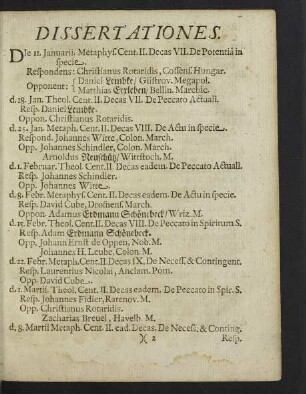 DISSERTATIONES.
DIe 11. Januarii. Metaphys. Cent. II. Decas VII. De Potentiâ in
specie.
Respondens: Christianus Rotaridis, Cossens. Hungar.
Opponent: Daniel Lembke / Güstrov. Megapol.
Matthias Erxleben / Bellin. Marchic.
d. 18. Jan. Theol. Cent. II. Decas VII. De Peccato Actuali.
Resp. Daniel Lembke.
Oppon. Christianus Rotaridis.
d. 25. Jan. Metaph. Cent. II. Decas VIII. De Actu in specie.
Respond. Johannes Witte, Colon. March.
Opp. Johannes Schindler, Colon. March.
Arnoldus Neuschütz / Wittstoch. M.
d. 1. Februar. Theol. Cent. II. Decas eadem. De Peccato Actuali.
Resp. Johannes Schindler.
Opp. Johannes Witte.
d. 8. Febr. Metaphys. Cent. II. Decas eadem. De Actu in specie.
Resp. David Cube, Drosnens. March.
Oppon. Adamus Erdmann Schönebeck / Wriz. M.
d. 15. Febr. Theol. Cent. II. Decas VIII. De Peccato in Spiritum S.
Resp. Adam Erdmann Schönebeck.
Opp. Johann Ernst de Oppen, Nob. M.
Johannes H. Leube. Colon. M.
d. 22. Febr. Metaph. Cent. II. Decas IX. De Necess. & Contingent.
Resp. Laurentius Nicolai, Anclam. Pom.
Opp. David Cube.
d. 1. Martii. Theol. Cent. II. Decas eadem. De Peccato in Spir. S.
Resp. Johannes Fidler, Ratenov. M.
Opp. Christianus Rotaridis.
Zacharias Breuel, Havelb. M.
d. 8. Martii Metaph. Cent. II. ead. Decas. De Necess. & Conting.
)( 2 Resp.